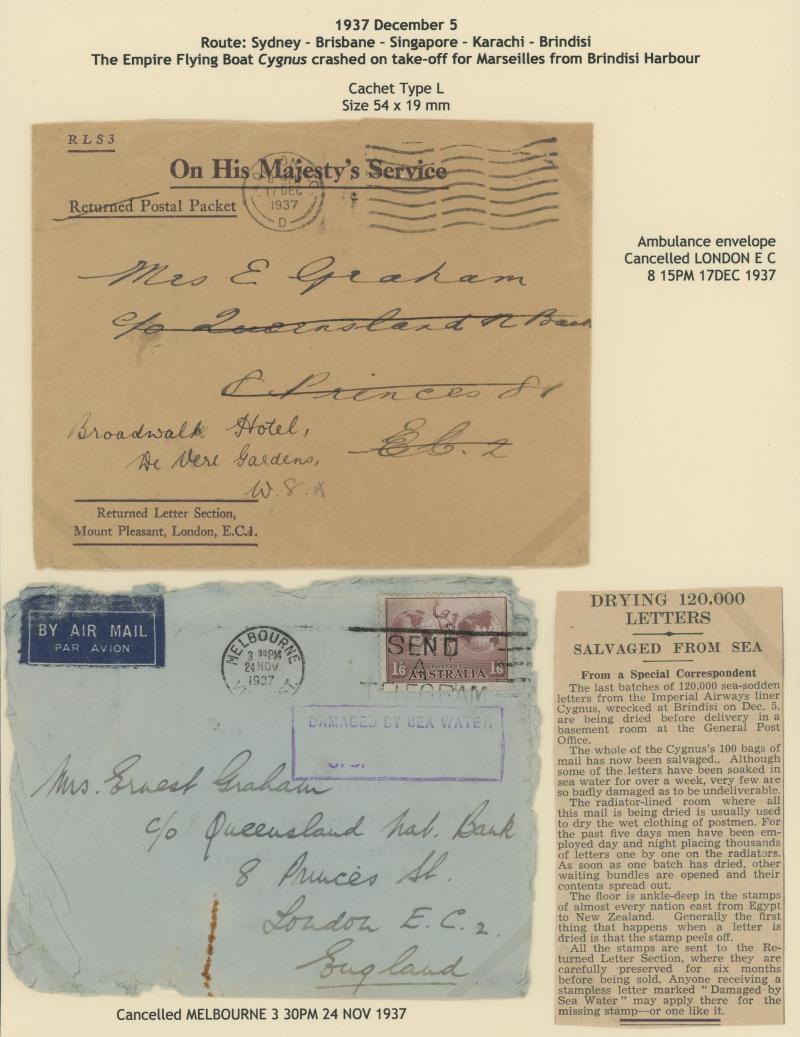 1937 December 5
Route: Sydney - Brisbane - Singapore - Karachi - Brindisi
The Empire Flying Boat Cygnus crashed on take-off for Marseilles from Brindisi Harbour
Cachet Type L
Size 54 x 19 mm
RLS3
On His Majesty's Service
Returned Postal Packet
17 DEC
1937
D
Mrs E Graham
c/o Queensland N Bank
8 Princes St
E.C. 2
Broadwalk Hotel,
De Vere Gardens,
W. 8.
Returned Letter Section,
Mount Pleasant, London, E.C.1.
Ambulance envelope
Cancelled LONDON E C
8 15PM 17DEC 1937
BY AIR MAIL
PAR AVION
MELBOURNE
3 30PM
24 NOV
1937
SEND
A
TELEGRAM
POSTAGE
1/6 AUSTRALIA 1/6
DAMAGED BY SEA WATER
Mrs. Ernest Graham
c/o Queensland Nat. Bank
8 Princes St.
London E.C. 2.
England
Cancelled MELBOURNE 3 30PM 24 NOV 1937
DRYING 120,000
LETTERS
SALVAGED FROM SEA
From a Special Correspondent
The last batches of 120,000 sea-sodden
letters from the Imperial Airways liner
Cygnus, wrecked at Brindisi on Dec. 5,
are being dried before delivery in a
basement room at the General Post
Office.
The whole of the Cygnus's 100 bags of
mail has now been salvaged.. Although
some of the letters have been soaked in
sea water for over a week, very few are
so badly damaged as to be undeliverable.
The radiator-lined room where all
this mail is being dried is usually used
to dry the wet clothing of postmen. For
the past five days men have been em-
ployed day and night placing thousands
of letters one by one on the radiators.
As soon as one batch has dried, other
waiting bundles are opened and their
contents spread out.
The floor is ankle-deep in the stamps
of almost every nation east from Egypt
to New Zealand. Generally the first
thing that happens when a letter is
dried is that the stamp peels off.
All the stamps are sent to the Re-
turned Letter Section, where they are
carefully preserved for six months
before being sold. Anyone receiving a
stampless letter marked "Damaged by
Sea Water" may apply there for the
missing stamp—or one like it.